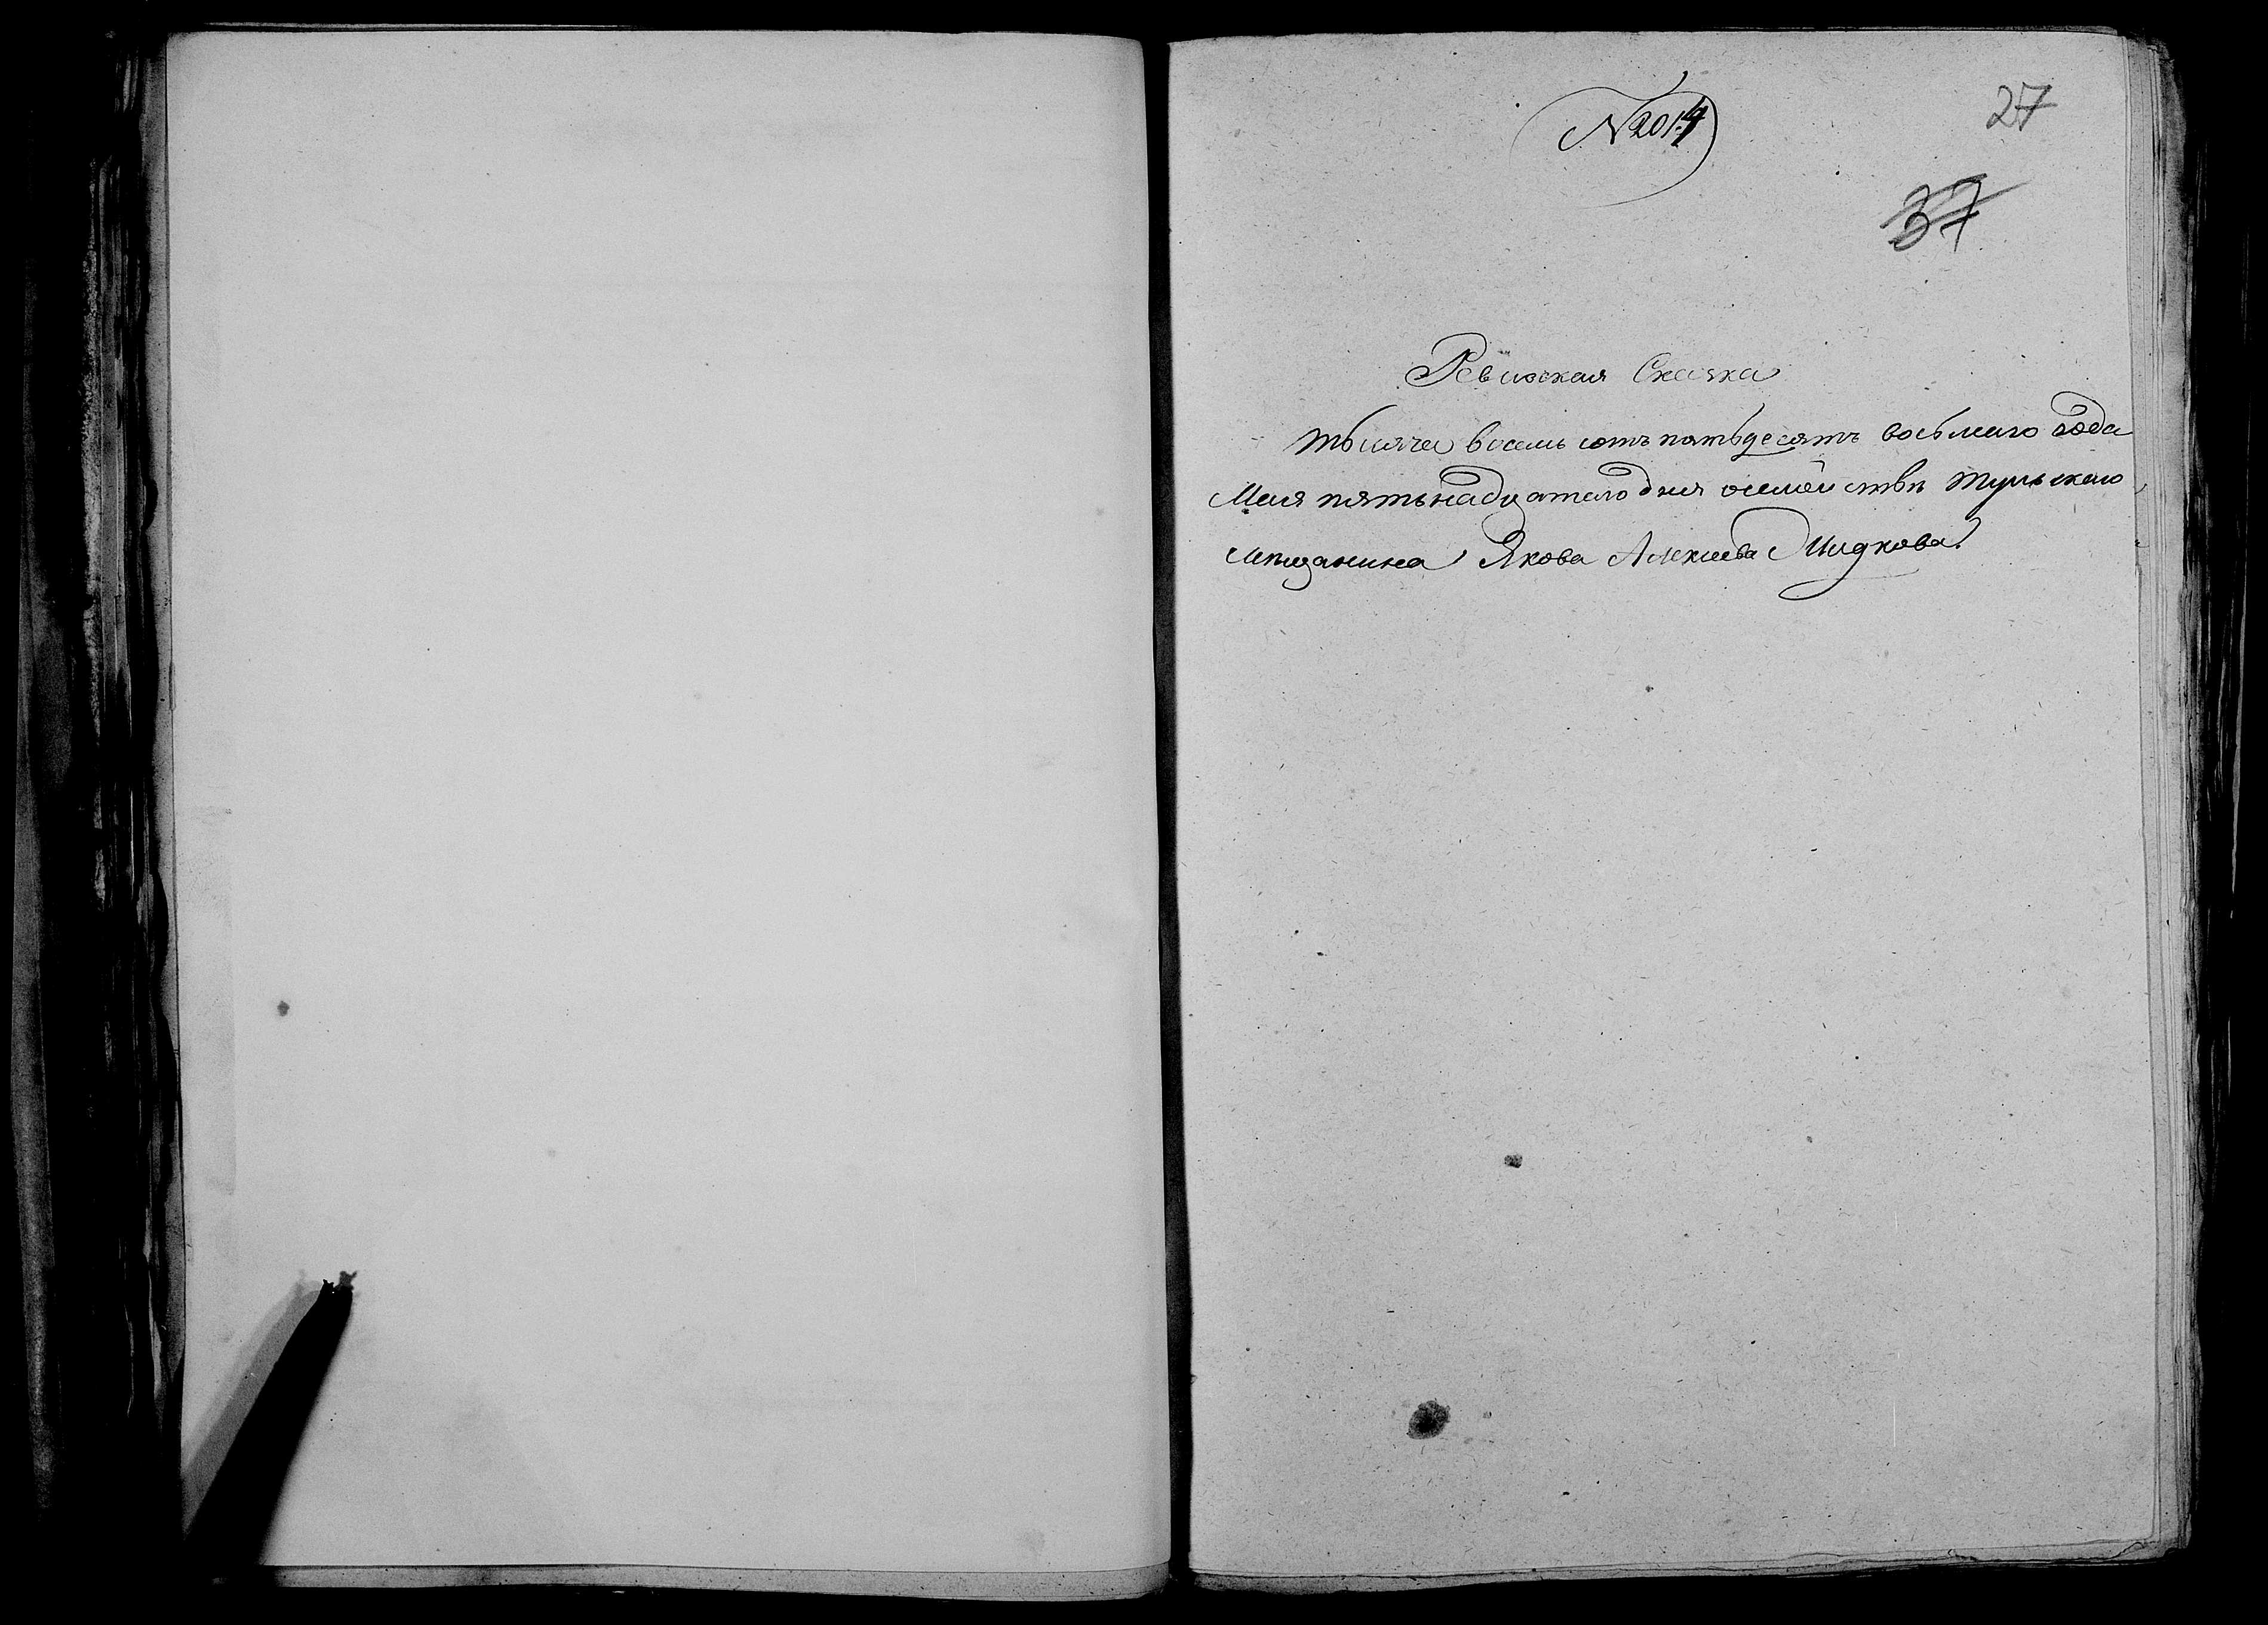 № 2014
27
37
Ревизская Сказка
Тысяча восемь сотъ пятьдесятъ восьмаго года
Мая пятьнадцатаго дня осемействѣ Тульскаго
мещанина Якова Алексеева